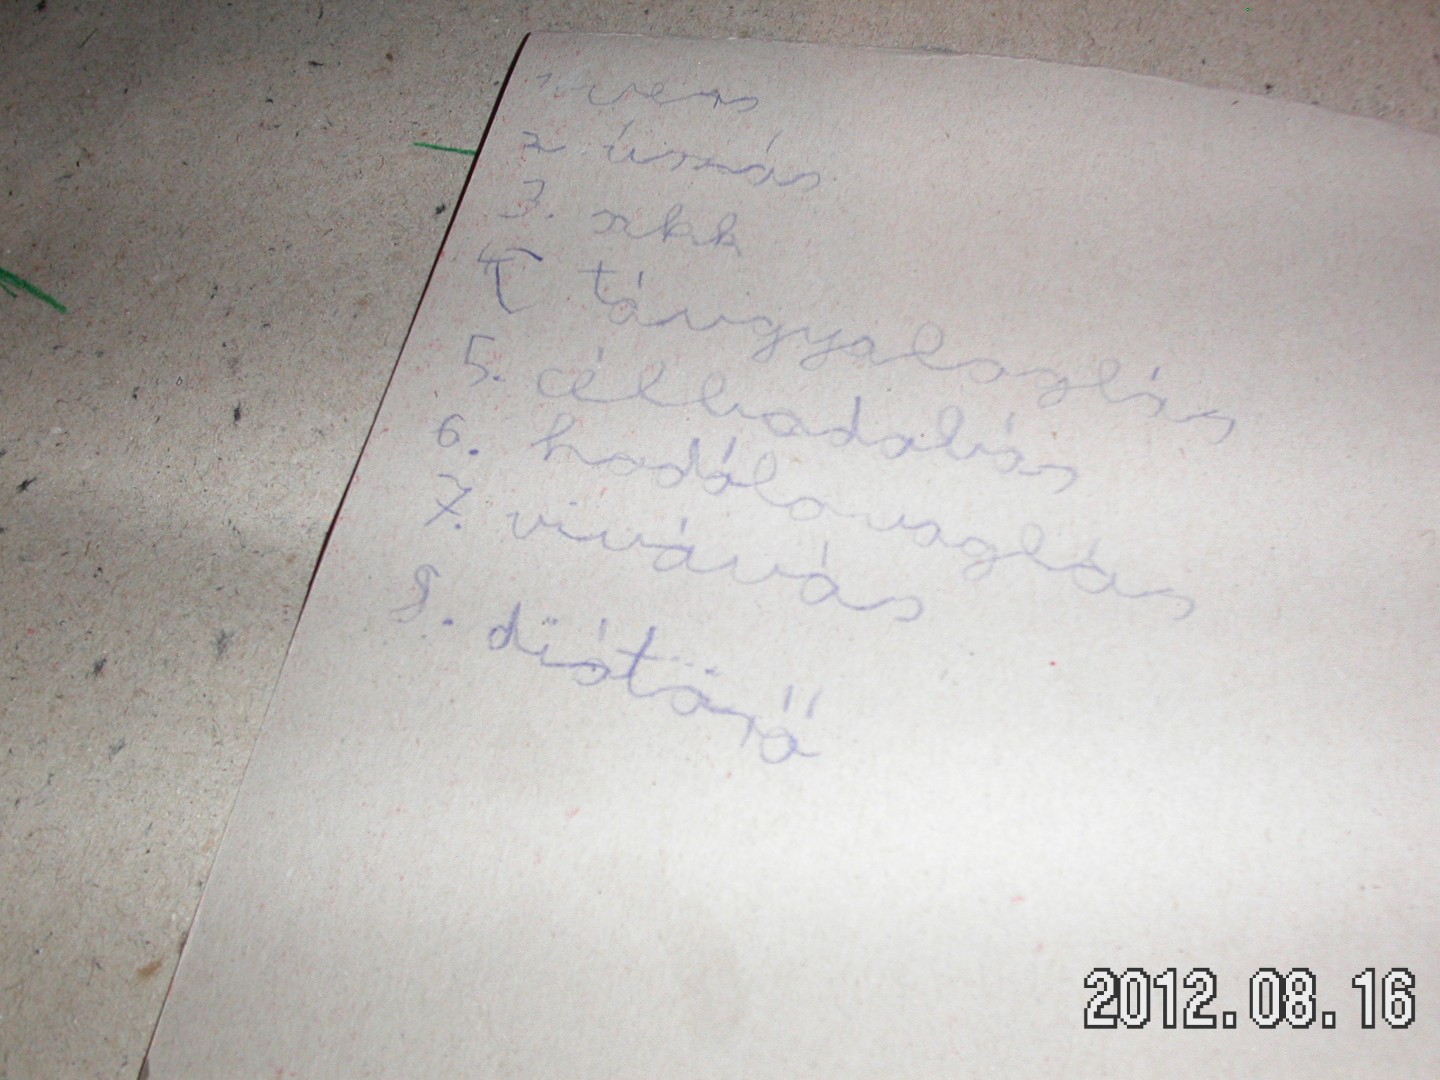 1. vers
2. úszás
3. xkk
4. távgyaloglás
5. célbadobás
6. hodálovaglás
7. vivávás
8. diótörő
2012.08.16